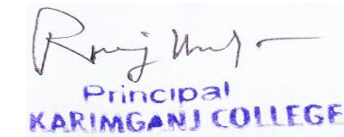 Principal
KARIMGANJ COLLEGE